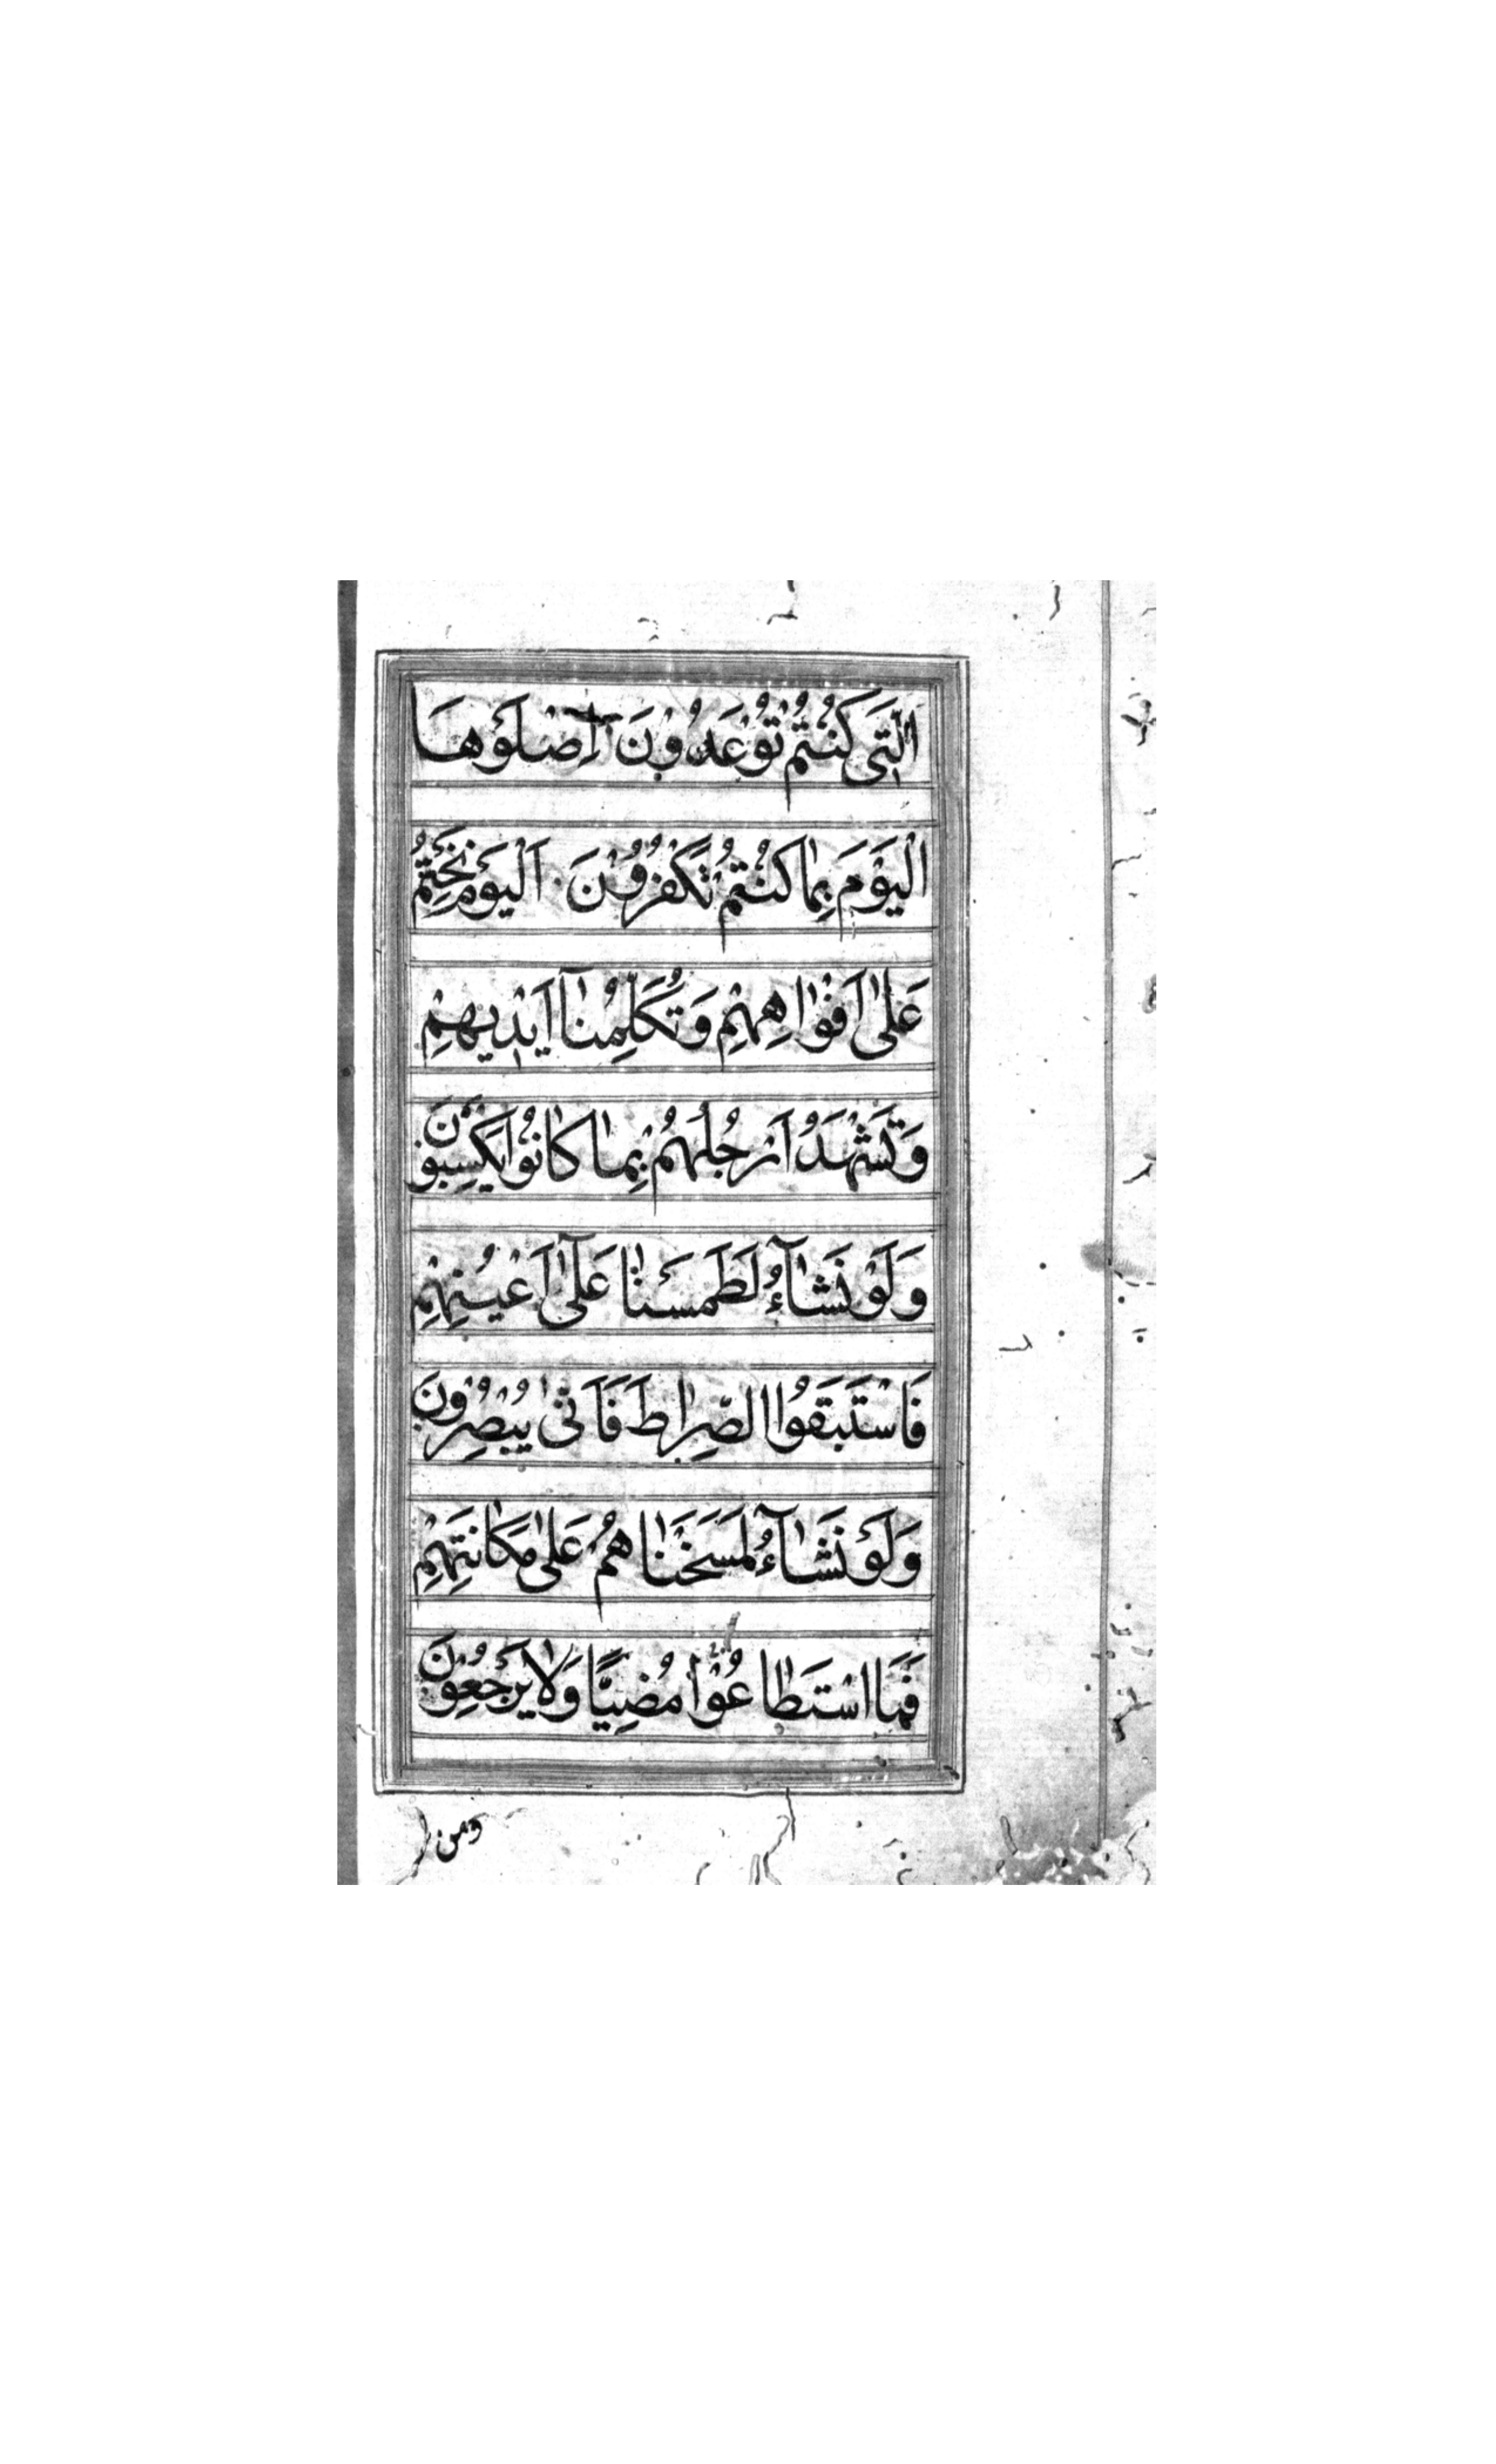 الَّتِي كُنْتُمْ تُوْعَدُوْنَ اِصْلَوْهَا
الْيَوْمَ بِمَا كُنْتُمْ تَكْفُرُوْنَ اَلْيَوْمَ نَخْتِمُ
عَلٰى اَفْوَاهِهِمْ وَتُكَلِّمُنَا اَيْدِيهِمْ
وَتَشْهَدُ اَرْجُلُهُمْ بِمَا كَانُوْا يَكْسِبُوْنَ
وَلَوْ نَشَآءُ لَطَمَسْنَا عَلٰٓى اَعْيُنِهِمْ
فَاسْتَبَقُوا الصِّرَاطَ فَاَنّٰى يُبْصِرُوْنَ
وَلَوْ نَشَآءُ لَمَسَخْنَاهُمْ عَلٰى مَكَانَتِهِمْ
فَمَا اسْتَطَاعُوْا مُضِيًّا وَلَا يَرْجِعُوْنَ
ومن